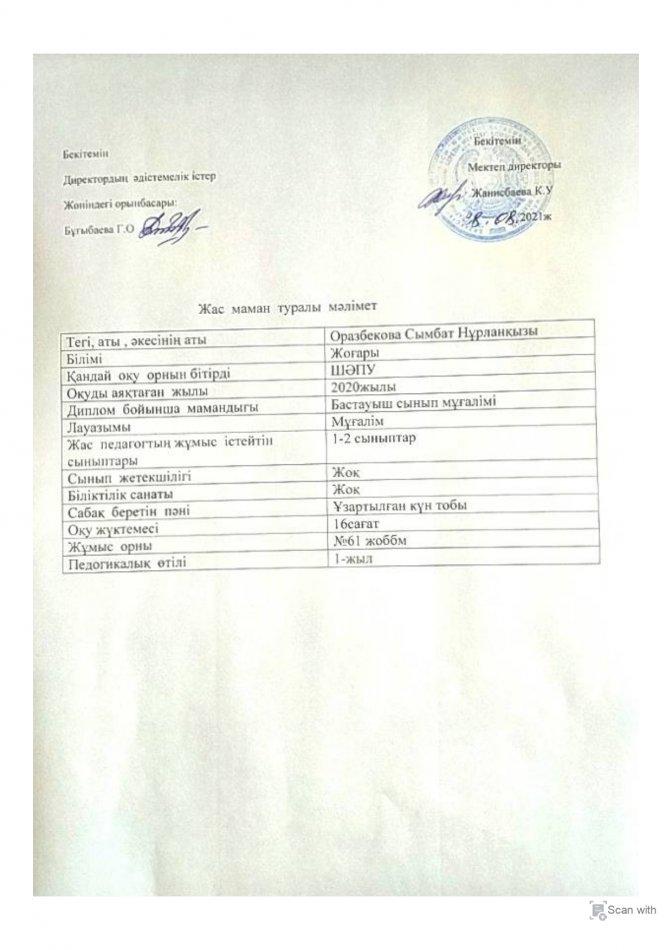 Бекітемін
Директордың әдістемелік істер
Жөніндегі орынбасары:
Бұғыбаева Г.О
Бекітемін
Мектеп директоры
Жанисбаева К.У
28-08.2021ж
Жас маман туралы мәлімет
Тегі, аты , әкесінің аты Оразбекова Сымбат Нұрланқызы
Білімі Жоғары
Қандай оқу орнын бітірді ШӘПУ
Оқуды аяқтаған жылы 2020жылы
Диплом бойынша мамандығы Бастауыш сынып мұғалімі
Лауазымы Мұғалім
Жас педагогтың жұмыс істейтін 1-2 сыныптар
сыныптары
Сынып жетекшілігі Жоқ
Біліктілік санаты Жоқ
Сабақ беретін пәні Ұзартылған күн тобы
Оқу жүктемесі 16сағат
Жұмыс орны №61 жоббм
Педогикалық өтілі 1-жыл
Scan with